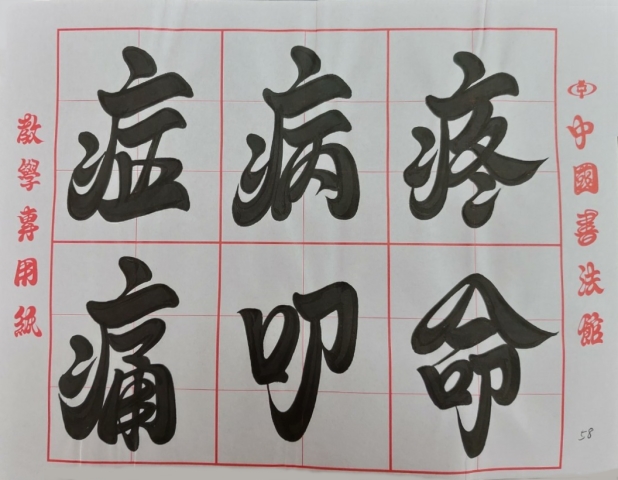 中國書法館
疼病症
命叩痛
教學專用紙
58